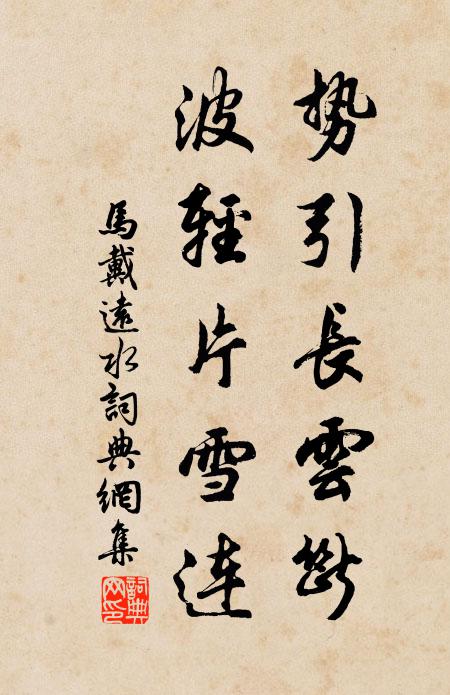 势引長雲斷
波輕片雪连
馬戴遠水詞典網集
詞典网印